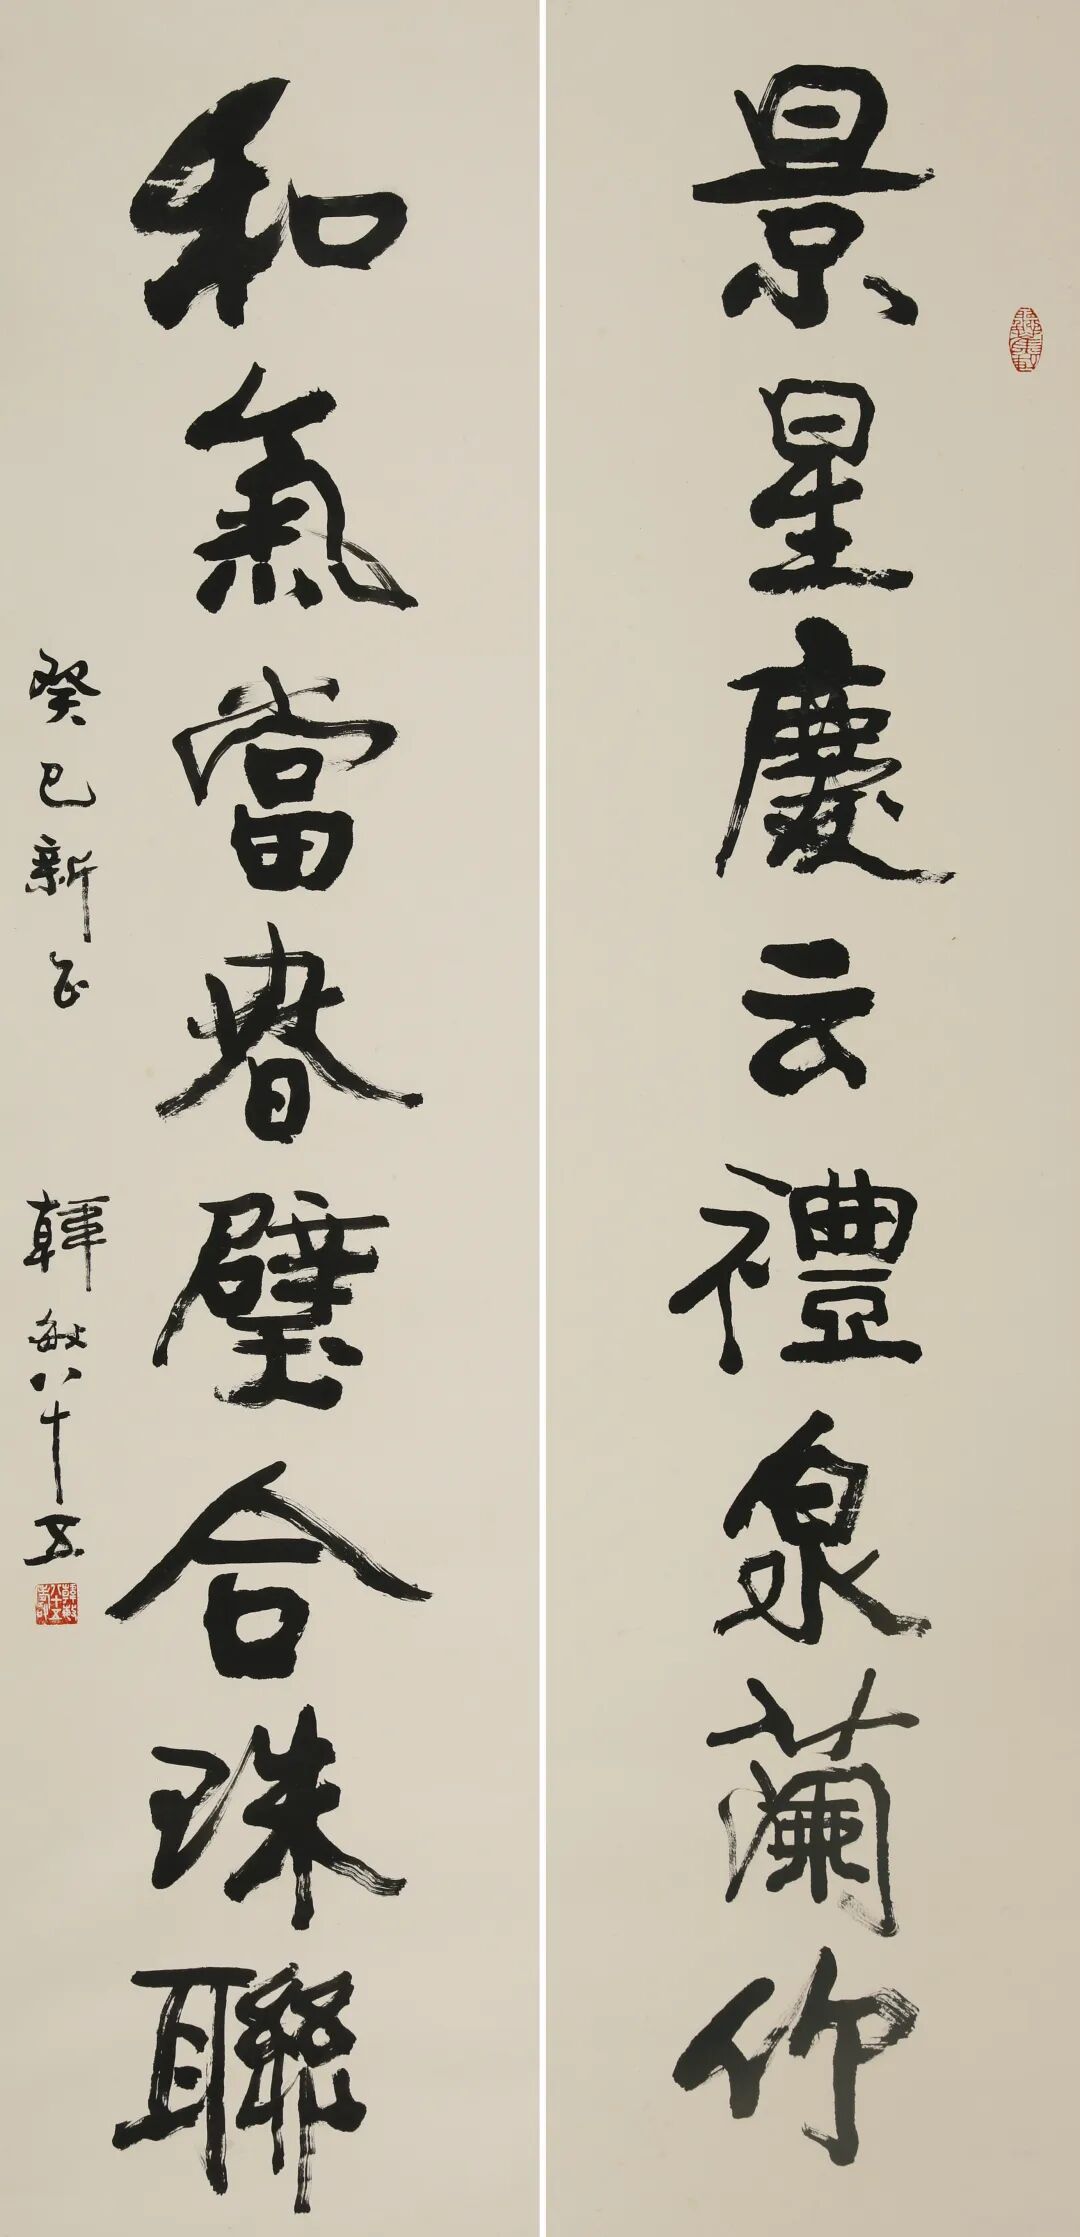 景星慶云禮泉蘭竹
和氣當春璧合珠聯
癸巳新正
韓敏八十五